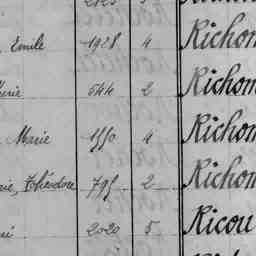 Emile 1928 4 Richom
544 2 Richom
Marie 1550 4 Richom
Théodore 795 2 Richom
2020 5 Ricou